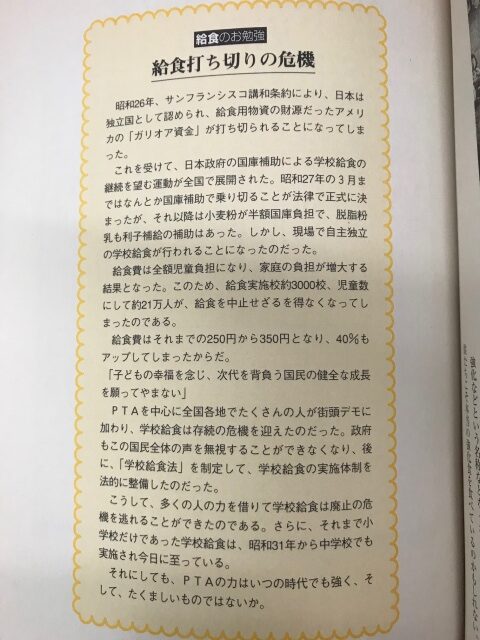 給食のお勉強
給食打ち切りの危機
昭和26年、サンフランシスコ講和条約により、日本は
独立国として認められ、給食用物資の財源だったアメリ
カの「ガリオア資金」が打ち切られることになってしま
った。
これを受けて、日本政府の国庫補助による学校給食の
継続を望む運動が全国で展開された。昭和27年の3月ま
ではなんとか国庫補助で乗り切ることが法律で正式に決
まったが、それ以降は小麦粉が半額国庫負担で、脱脂粉
乳も利子補給の補助はあった。しかし、現場で自主独立
の学校給食が行われることになったのだった。
給食費は全額児童負担になり、家庭の負担が増大する
結果となった。このため、給食実施校約3000校、児童数
にして約21万人が、給食を中止せざるを得なくなってし
まったのである。
給食費はそれまでの250円から350円となり、40%も
アップしてしまったからだ。
「子どもの幸福を念じ、次代を背負う国民の健全な成長
を願ってやまない」
PTAを中心に全国各地でたくさんの人が街頭デモに
加わり、学校給食は存続の危機を迎えたのだった。政府
もこの国民全体の声を無視することができなくなり、後
に、「学校給食法」を制定して、学校給食の実施体制を
法的に整備したのだった。
こうして、多くの人の力を借りて学校給食は廃止の危
機を逃れることができたのである。さらに、それまで小
学校だけであった学校給食は、昭和31年から中学校でも
実施され今日に至っている。
それにしても、PTAの力はいつの時代でも強く、そ
して、たくましいものではないか。